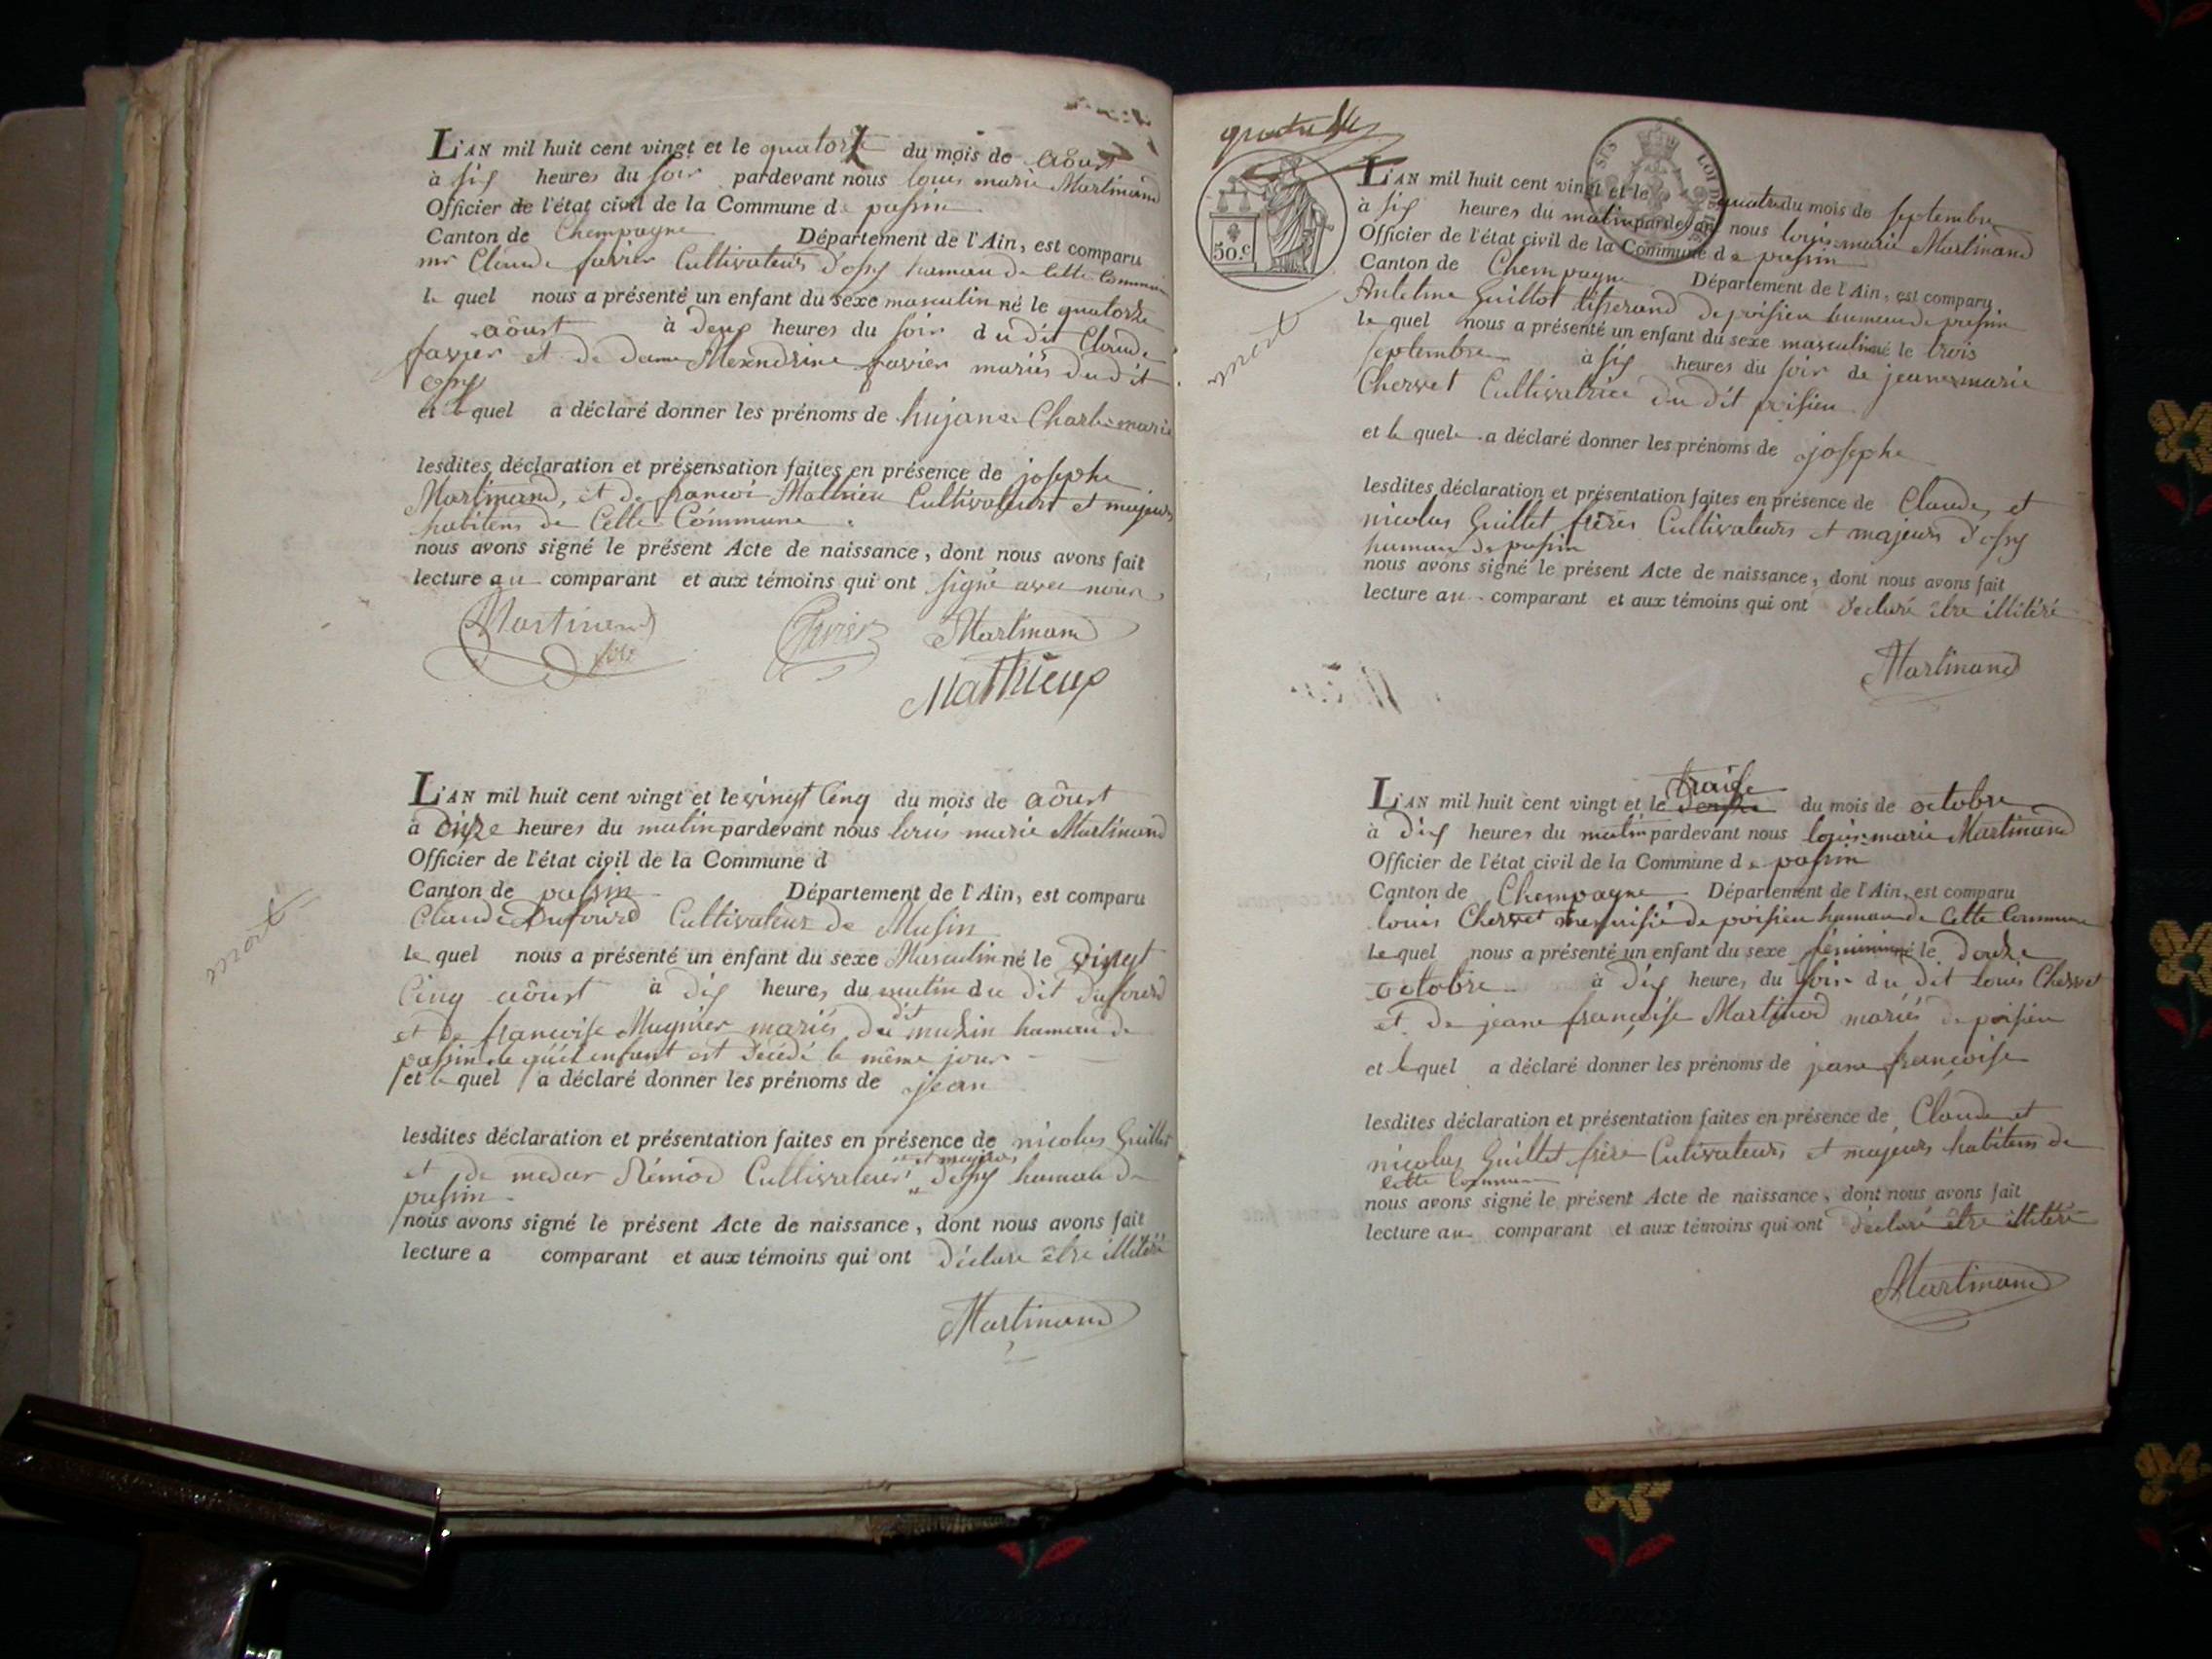 L'AN mil huit cent vingt et le quatorze du mois de aôust
à six heures du soir pardevant nous louis marie Martinand
Officier de l'état civil de la Commune de passin
Canton de Chempagne Département de l'Ain, est comparu
mr Claude favier Cultivateur d'ossy hamau de Cette Commune
le quel nous a présenté un enfant du sexe masculin né le quatorze
aôust à deux heures du soir du dit Claude
favier et de dame Alexndrine favier mariés du dit
ossy
et le quel a déclaré donner les prénoms de hujane Charle marie
lesdites déclaration et présensation faites en présence de josephe
Martinand, et de francoi Mathieu Cultivateurs et majeurs
habitens de Cette Commune
nous avons signé le présent Acte de naissance, dont nous avons fait
lecture au comparant et aux témoins qui ont signé avec nous
Martinand favier Martinand
Mathieux
L'AN mil huit cent vingt et le vingt Cinq du mois de aôust
à onze heures du matin pardevant nous louis marie Martinand
Officier de l'état civil de la Commune d
Canton de passin Département de l'Ain, est comparu
mort
Claude Dufourd Cultivateur de Musin
le quel nous a présenté un enfant du sexe Masculin né le vingt
Cinq aôust à dix heures du matin du dit dufourd
et de francoise Mugnier mariés du dit musin hamau de
passin le quel enfant est décédé le même jour
et le quel a déclaré donner les prénoms de jean
lesdites déclaration et présentation faites en présence de nicolas Guillet
et de medar Rémod Cultivateurs et majeurs d'ossy hamau de
passin
nous avons signé le présent Acte de naissance, dont nous avons fait
lecture a comparant et aux témoins qui ont déclare être illitéré
Martinand
50.c
L'AN mil huit cent vingt et le quatre du mois de septembre
à six heures du matin pardevant nous louis marie Martinand
Officier de l'état civil de la Commune de passin
Canton de Chempagne Département de l'Ain, est comparu
mort
Antelme Guillot tisserand de poisieu hamau de passin
le quel nous a présenté un enfant du sexe masculin né le trois
septembre à six heures du soir de jeane marie
Chervet Cultivatrice du dit poisieu
et le quel a déclaré donner les prénoms de josephe
lesdites déclaration et présentation faites en présence de Claude, et
nicolas Guillet frères Cultivateurs et majeurs d'ossy
hamau de passin
nous avons signé le présent Acte de naissance, dont nous avons fait
lecture au comparant et aux témoins qui ont déclaré être illitéré
Martinand
L'AN mil huit cent vingt et le douze traise du mois de octobre
à dix heures du matin pardevant nous louis marie Martinand
Officier de l'état civil de la Commune de passin
Canton de Chempagne Département de l'Ain, est comparu
louis Chervet menuisié de poisieu hamau de Cette Commune
le quel nous a présenté un enfant du sexe féminin né le douze
octobre à dix heures du soir du dit louis Chervet
et de jeane françoise Martinod mariés de poisieu
et le quel a déclaré donner les prénoms de jeane françoise
lesdites déclaration et présentation faites en présence de Claude et
nicolas Guillet frère Cutivateurs et majeurs habitens de
cette Commune
nous avons signé le présent Acte de naissance, dont nous avons fait
lecture au comparant et aux témoins qui ont déclaré être illitéré
Martinand